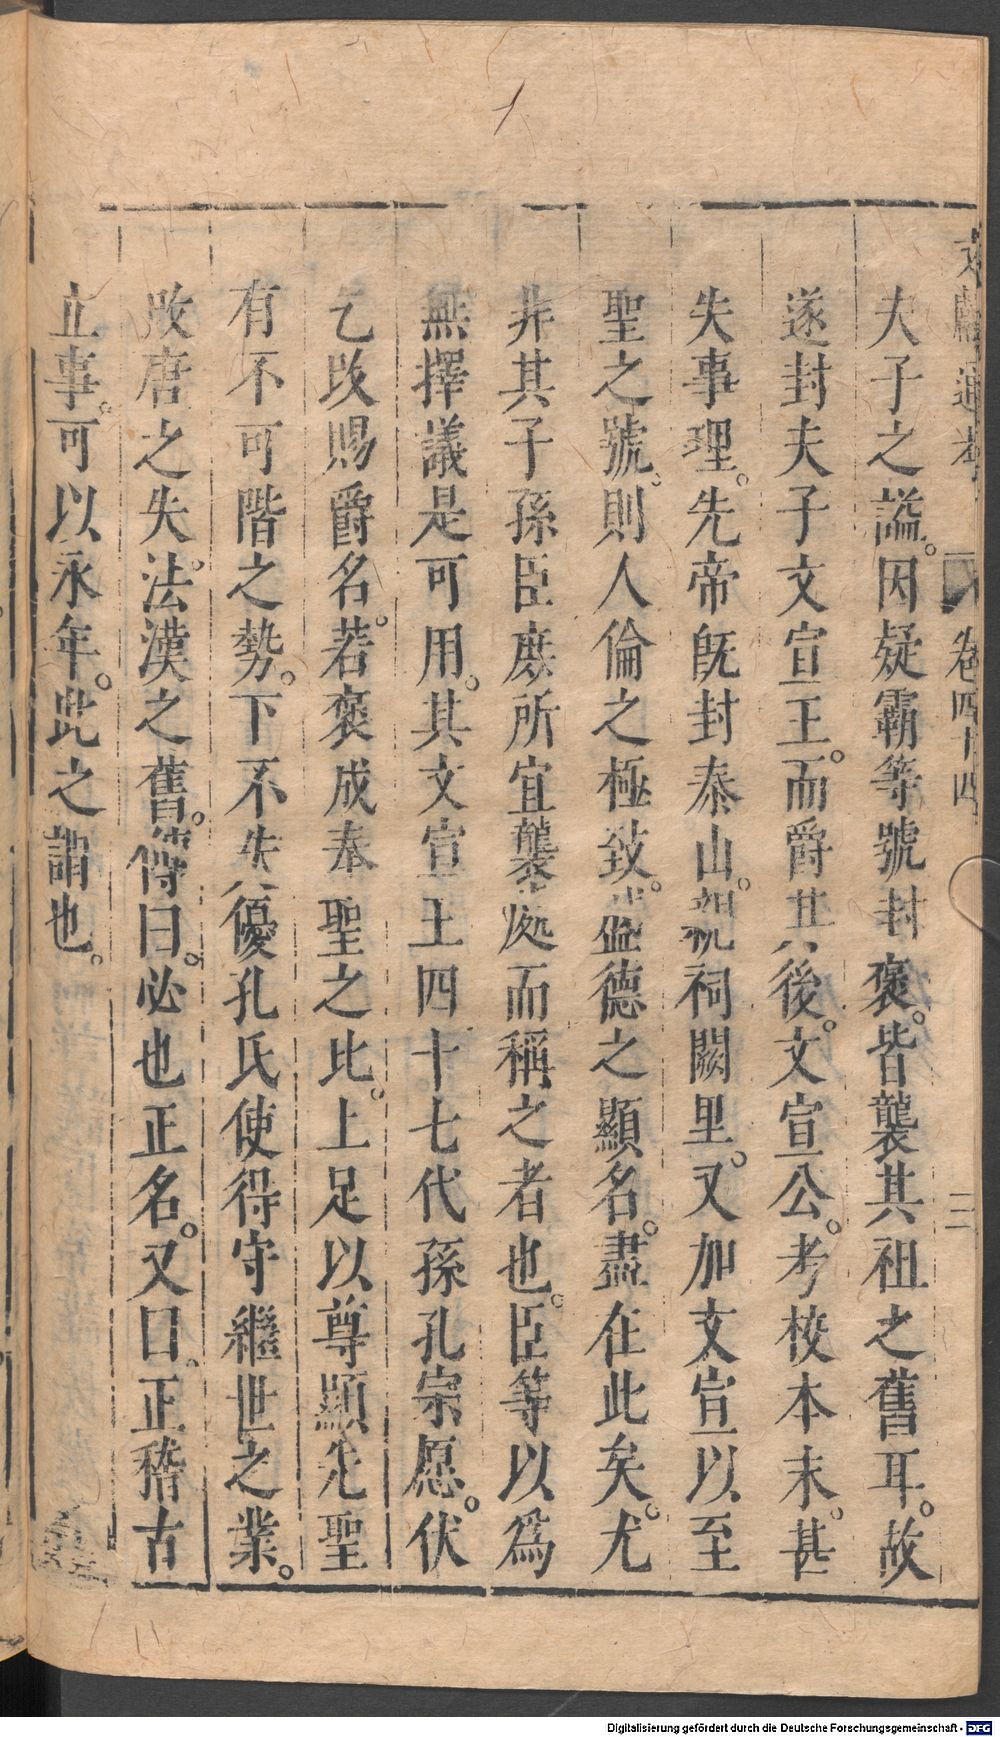 文獻通考 卷四十四 三
夫子之謚。因疑霸等號封褒。皆襲其祖之舊耳。故
遂封夫子文宣王。而爵其後。文宣公。考校本末。甚
失事理。先帝旣封泰山。親祠闕里。又加文宣以至
聖之號。則人倫之極致。盛德之顯名。盡在此矣。尤
非其子孫臣庶所宜襲處而稱之者也。臣等以爲
無擇議是可用。其文宣王四十七代孫孔宗愿。伏
乞改賜爵名。若褒成奉聖之比。上足以尊顯先聖
有不可階之勢。下不失優孔氏使得守繼世之業。
改唐之失。法漢之舊。傳曰。必也正名。又曰。正稽古
立事。可以永年。此之謂也。
Digitalisierung gefördert durch die Deutsche Forschungsgemeinschaft - DFG